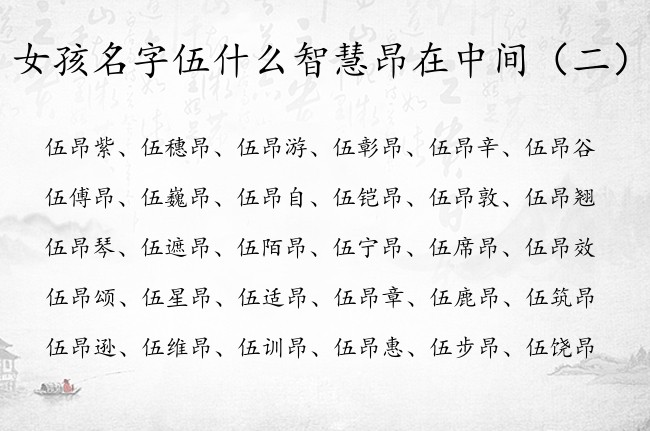 女孩名字伍什么智慧昂在中间（二）
伍昂紫、伍穗昂、伍昂游、伍彰昂、伍昂辛、伍昂谷
伍傅昂、伍巍昂、伍昂自、伍铠昂、伍昂敦、伍昂翘
伍昂琴、伍遮昂、伍陌昂、伍宁昂、伍席昂、伍昂效
伍昂颂、伍星昂、伍适昂、伍昂章、伍鹿昂、伍筑昂
伍昂逊、伍维昂、伍训昂、伍昂惠、伍步昂、伍饶昂